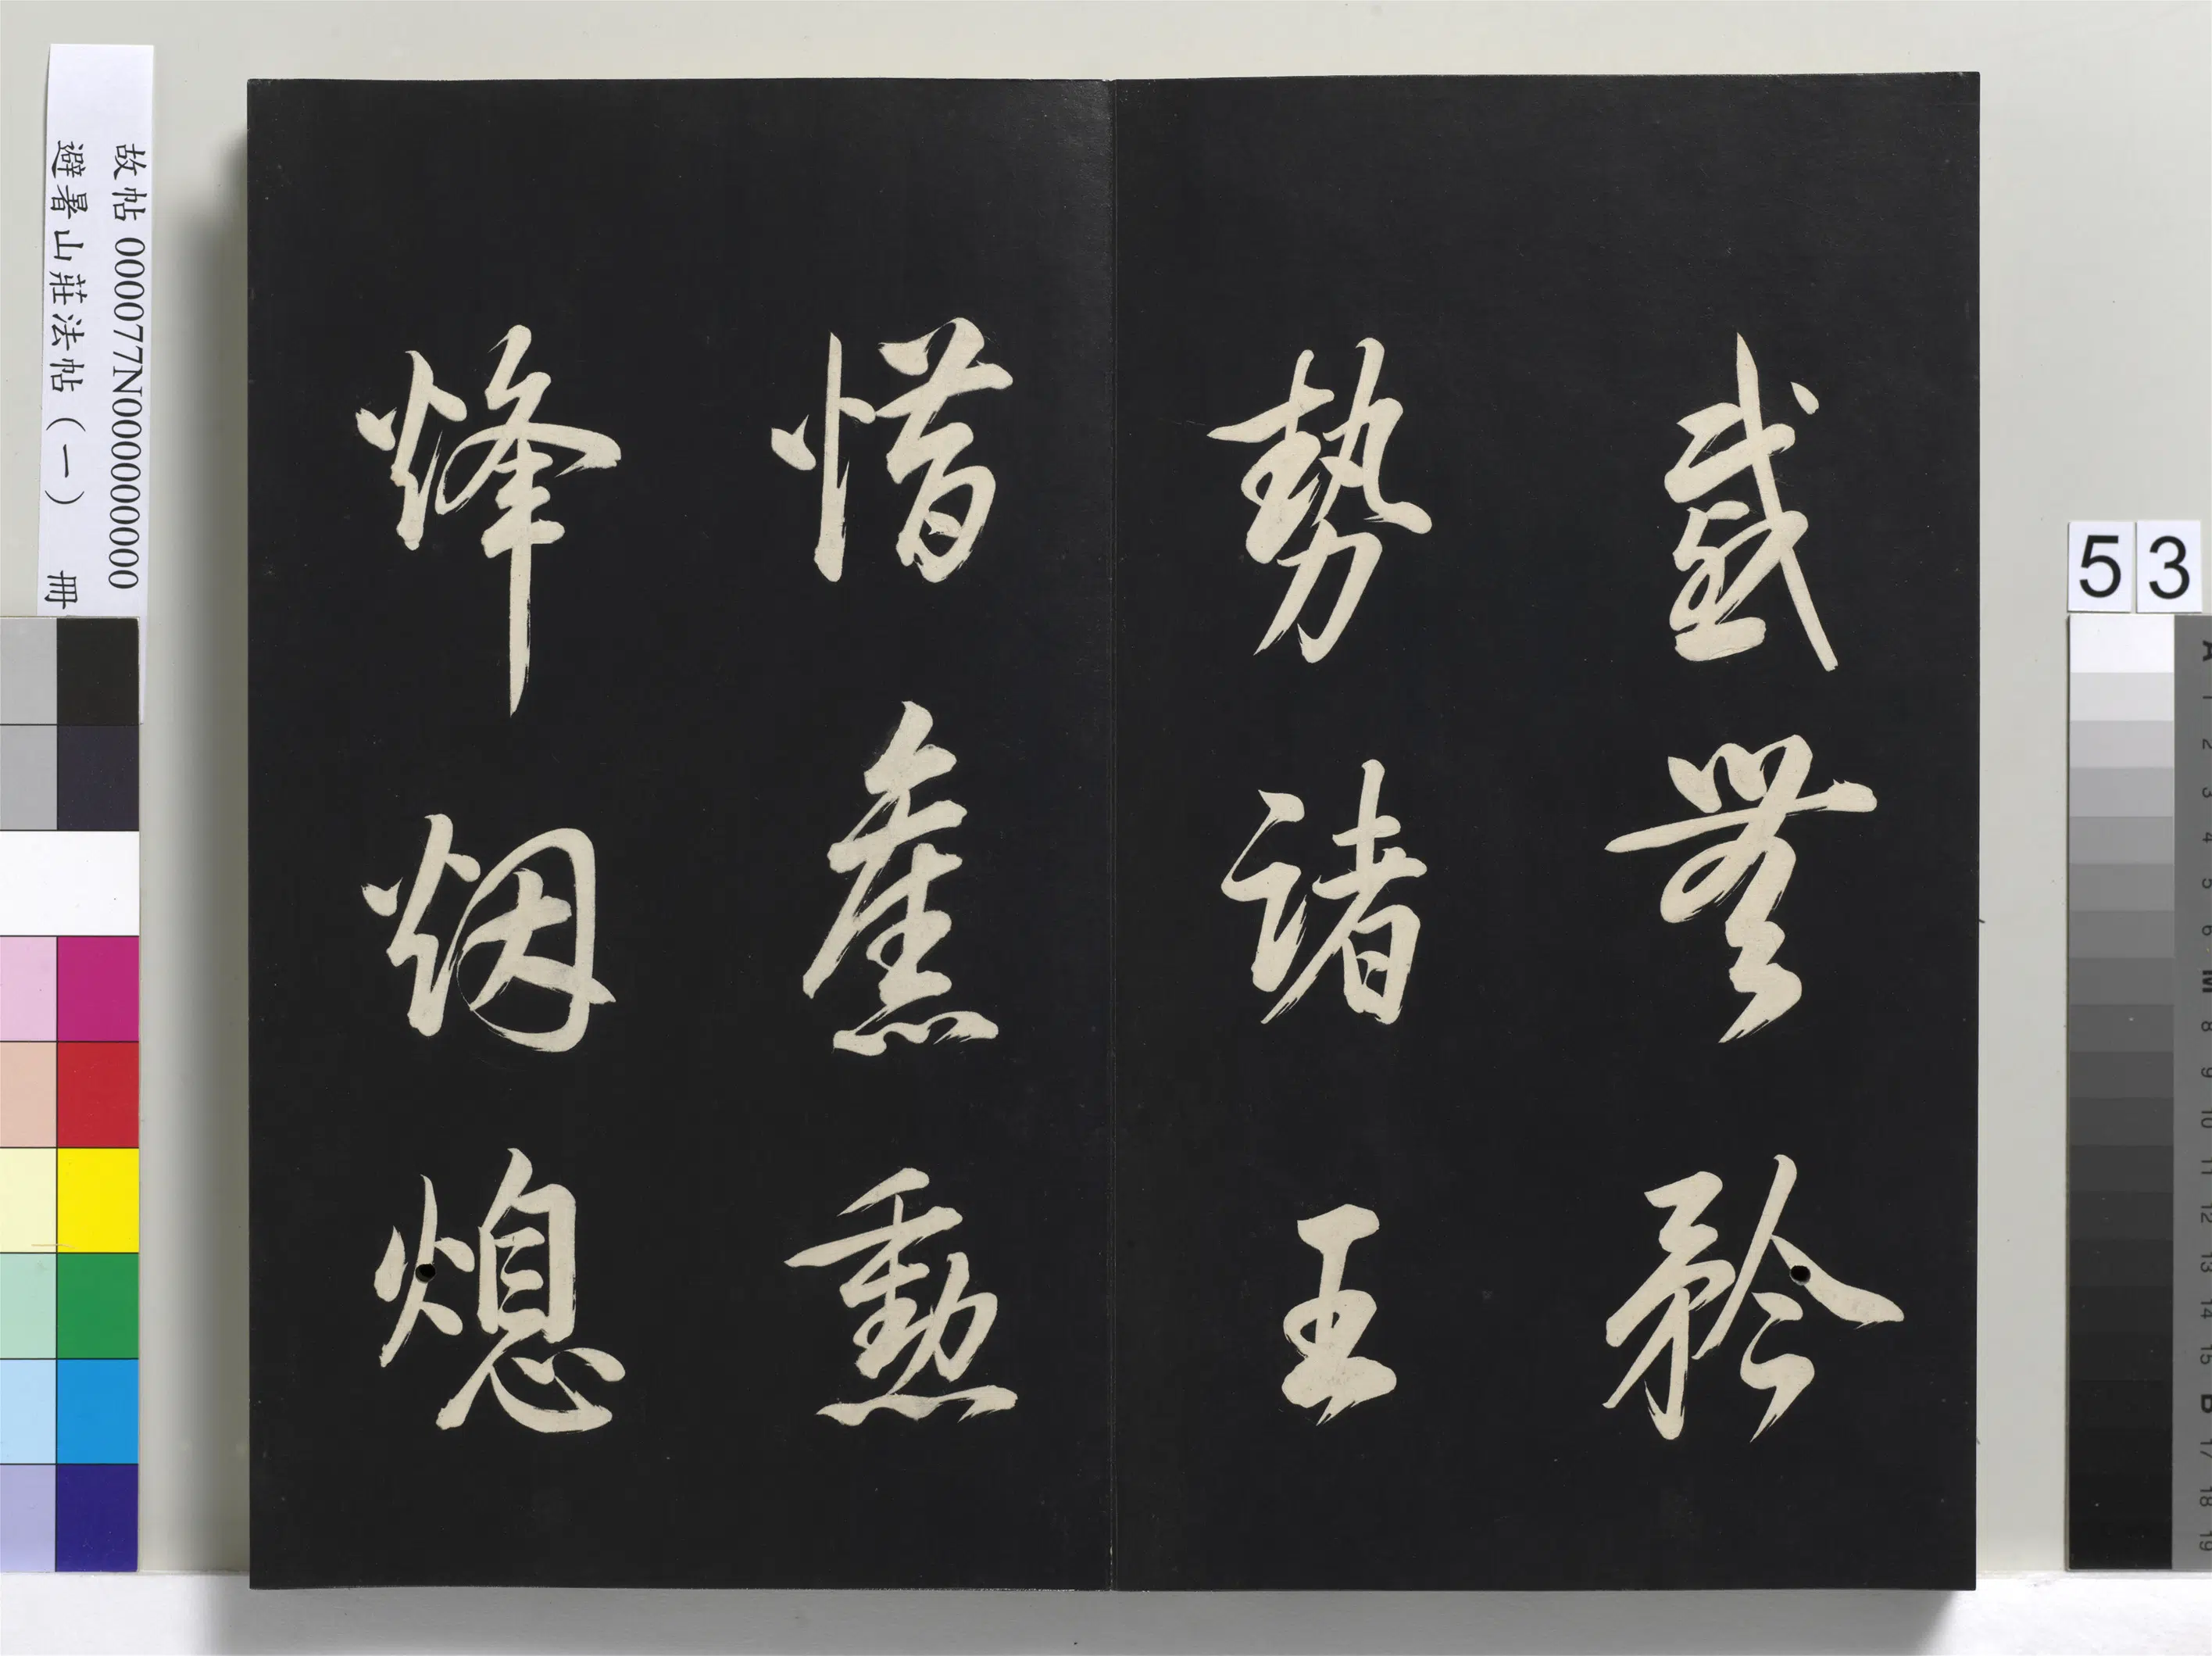 戚無矜
勢諸王
惜舊勳
烽烟熄
故帖 000077N000000000
避暑山莊法帖（一） 冊
53
A
1
2
3
4
5
6
M
8
9
10
11
12
13
14
15
B
17
18
19